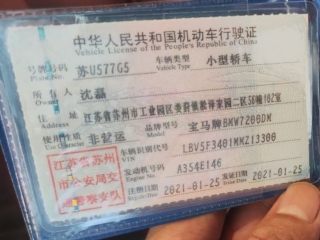 中华人民共和国机动车行驶证
Vehicle License of the People's Republic of China
号牌号码 苏U577G5 车辆类型 小型轿车
Plate No. Vehicle Type
所有人 沈磊
Owner
住址 江苏省苏州市工业园区
使用性质 非营运 品牌型号 宝马牌BMW7200DM
车辆识别代号 LBV5F3401MMZ13300
VIN
江苏省苏州
市公安局交
通警察支队
发动机号码 A354E146
Engine No.
注册日期 2021-01-25 发证日期 2021-01-25